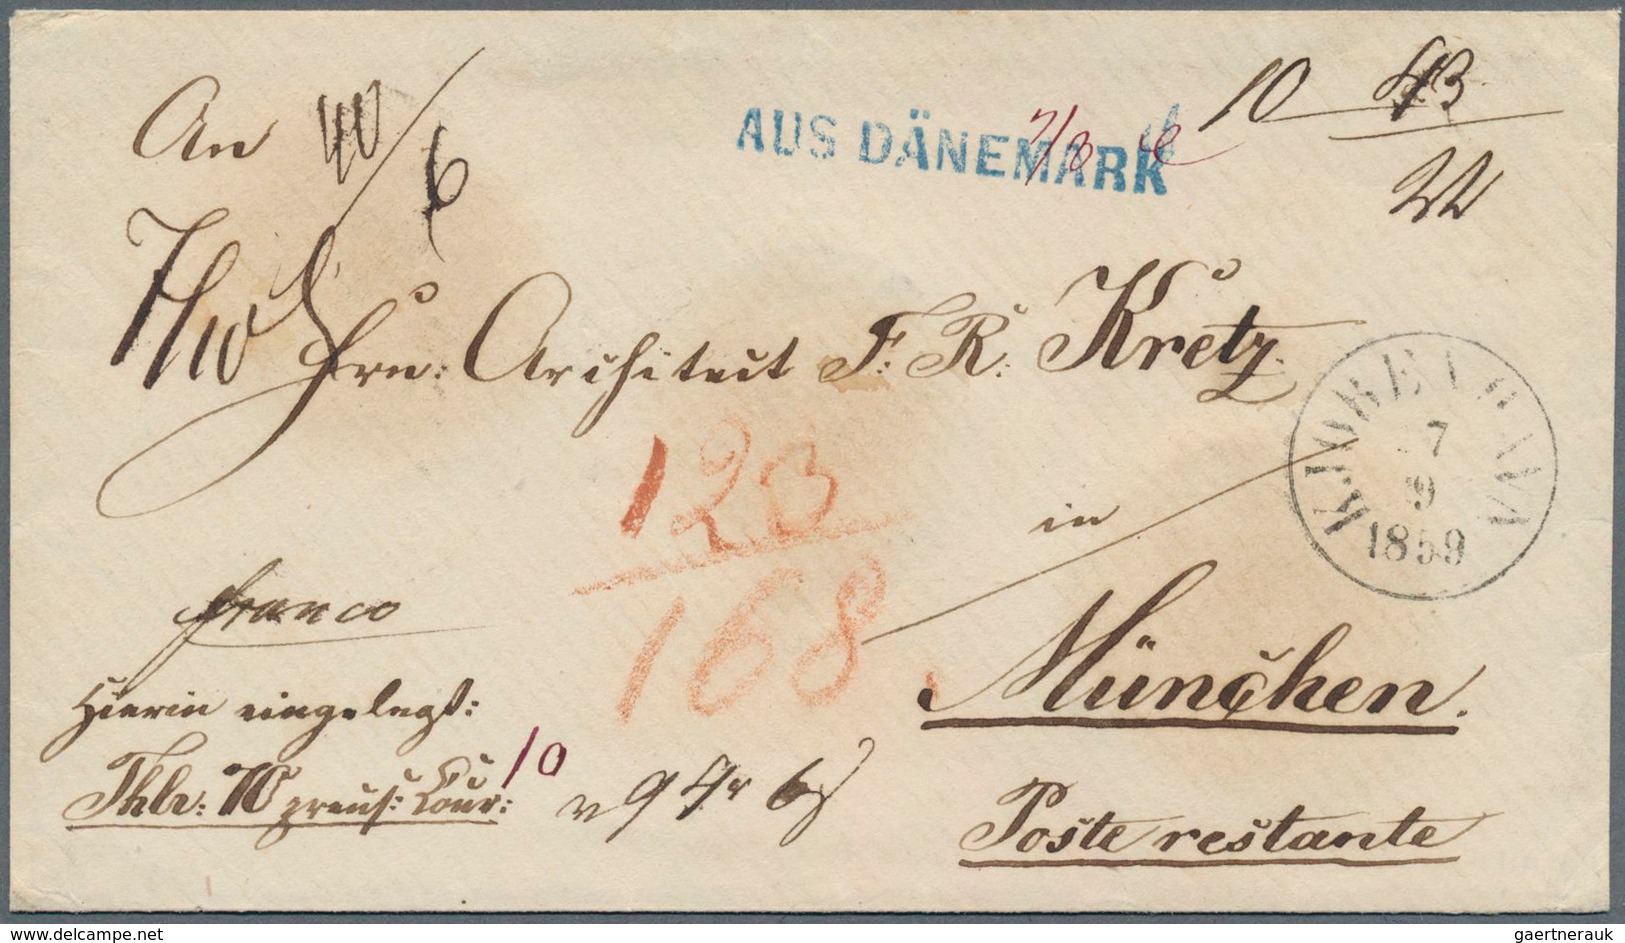 An
40/6
AUS DÄNEMARK
7/8
10
7/10
Hrn: Architect F. R. Kretz.
KJØBENHAVN
7
9
1859
123
168
in
franco
München.
Hierin eingelegt:
Thlr: 70 preuß: Cour:
10
9 6
Poste restante
delcampe.net
gaertnerauk